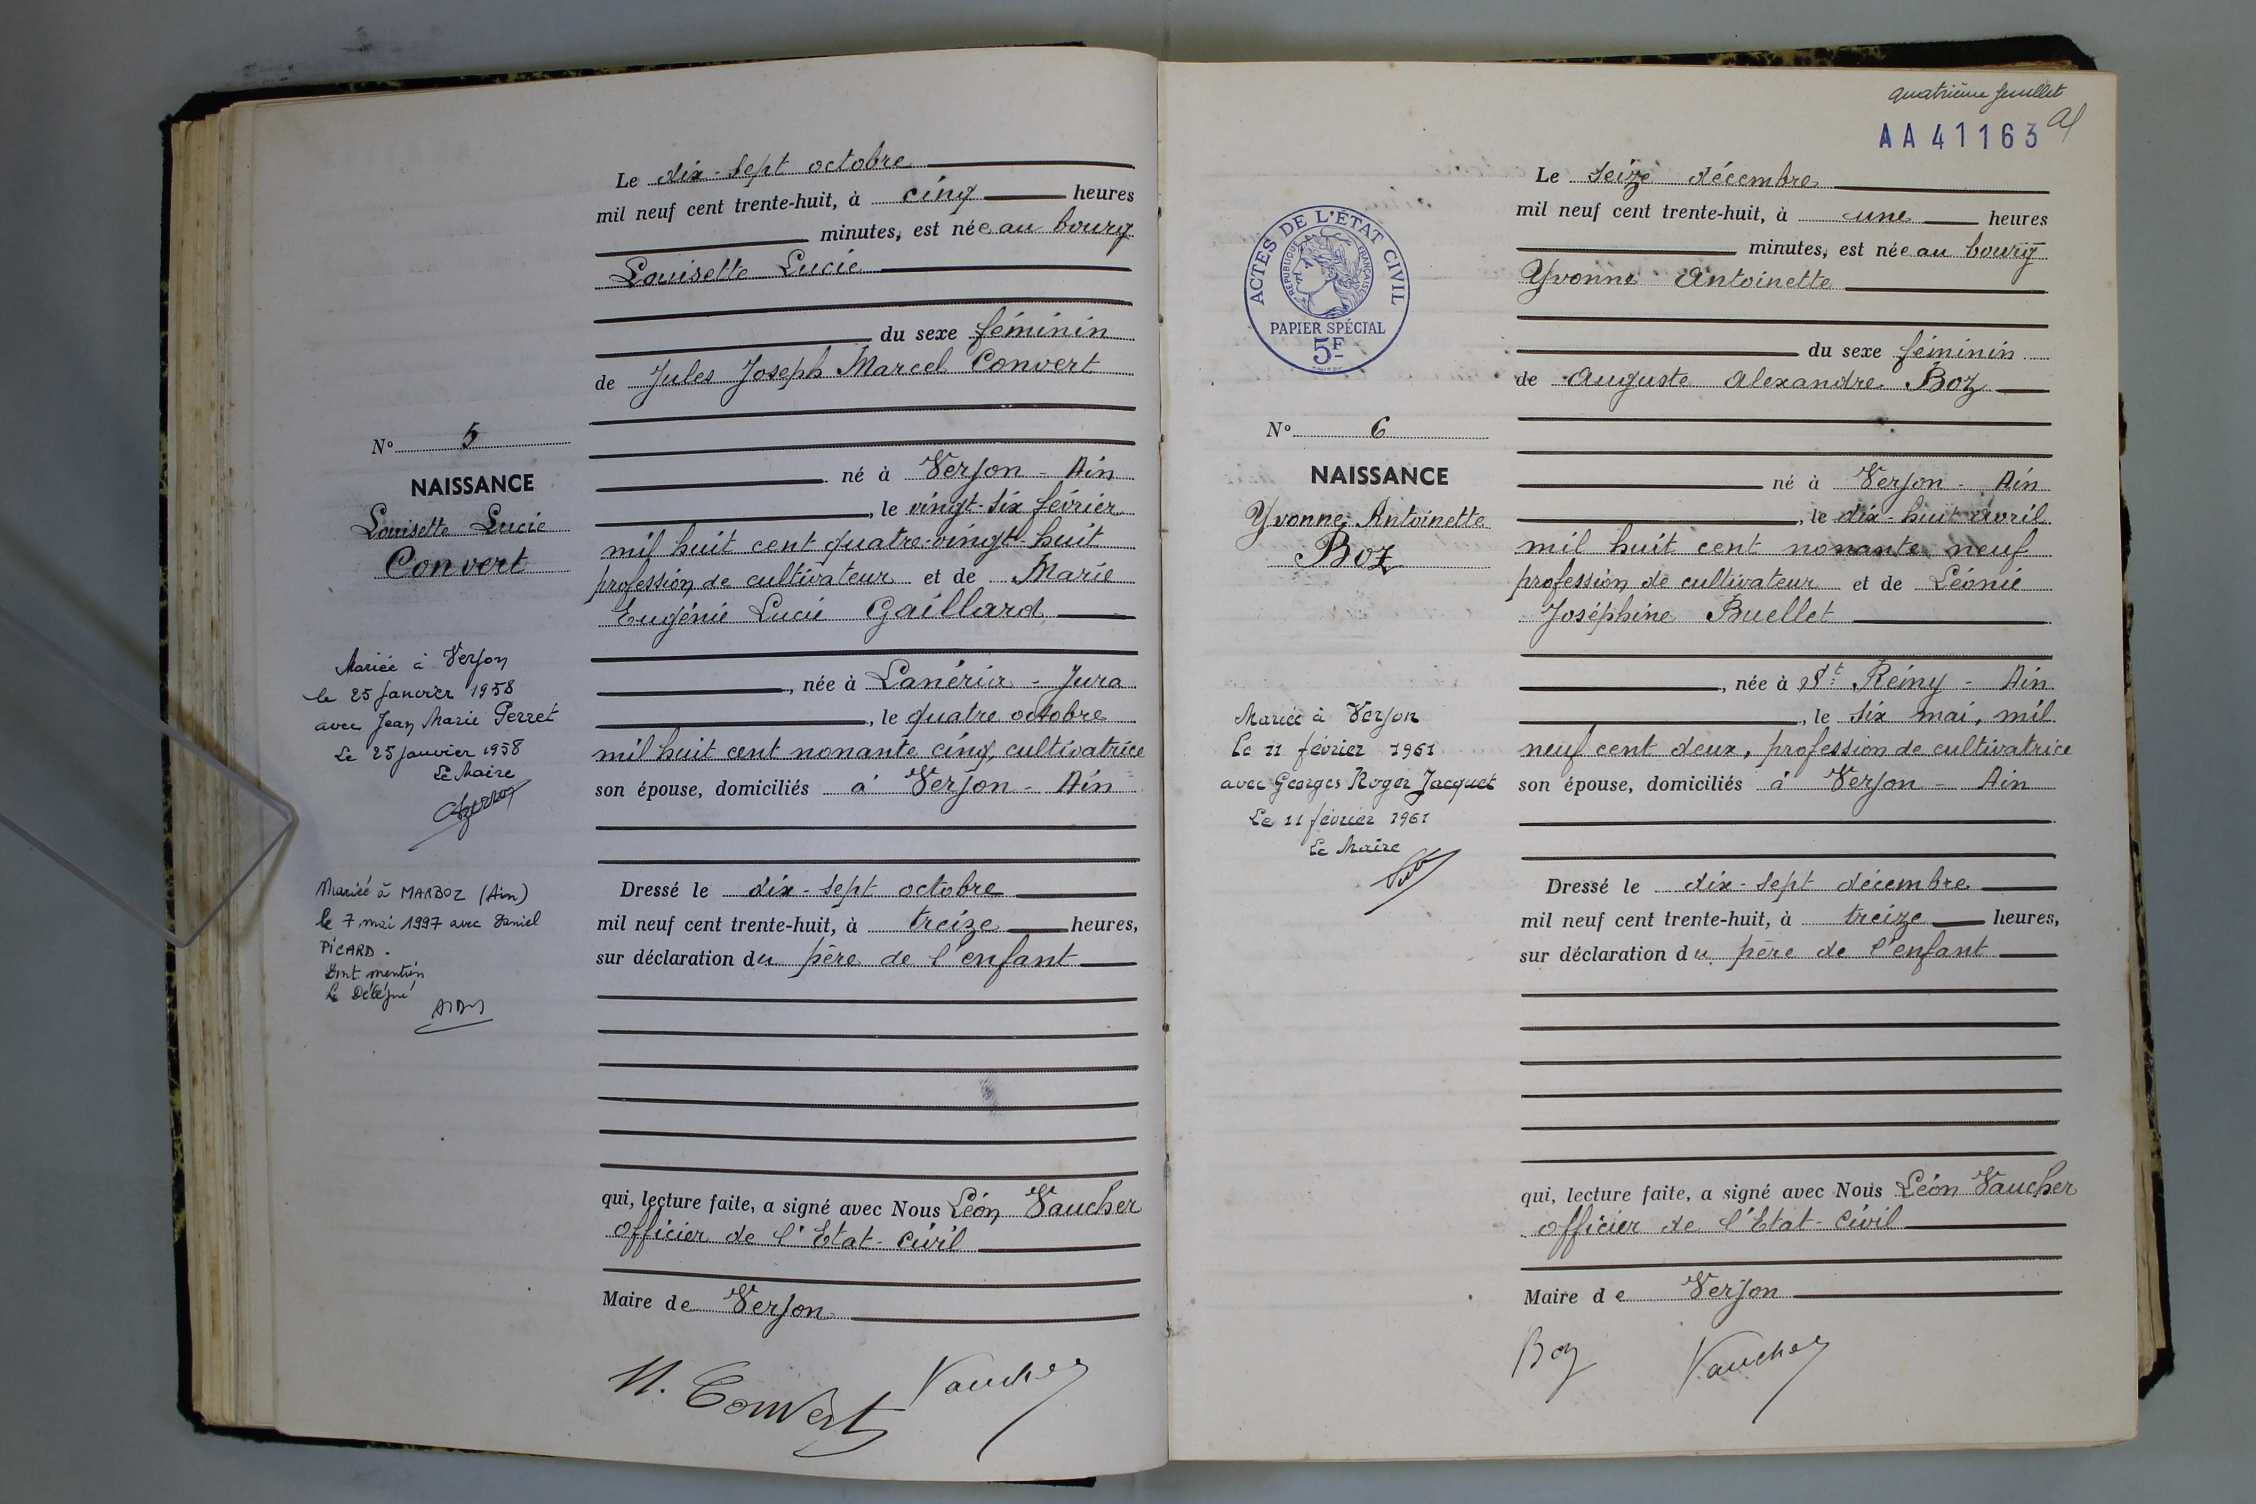 Le dix-sept octobre
mil neuf cent trente-huit, à cinq heures
minutes, est née au bourg
Louisette Lucie
du sexe féminin
de Jules Joseph Marcel Convert
né à Verjon - Ain
, le vingt-six février
mil huit cent quatre-vingt-huit
profession de cultivateur et de Marie
Eugénie Lucie Gaillard
, née à Lanéria - Jura
, le quatre octobre
mil huit cent nonante cinq, cultivatrice
son épouse, domiciliés à Verjon - Ain
Dressé le dix-sept octobre
mil neuf cent trente-huit, à treize heures,
sur déclaration du père de l'enfant
qui, lecture faite, a signé avec Nous Léon Vaucher
officier de l'Etat-Civil
Maire de Verjon
M. Convert Vaucher
N° 5
NAISSANCE
Louisette Lucie
Convert
Mariée à Verjon
le 25 janvier 1958
avec Jean Marie Perret
Le 25 janvier 1958
Le Maire
Mariée à MARBOZ (Ain)
le 7 mai 1997 avec Daniel
PICARD.
Dont mention
Le Délégué
quatrième feuillet
AA 41163
Le seize décembre
mil neuf cent trente-huit, à une heures
minutes, est née au bourg
Yvonne Antoinette
du sexe féminin
de Auguste Alexandre Boz
né à Verjon - Ain
, le dix-huit avril
mil huit cent nonante neuf
profession de cultivateur et de Léonie
Joséphine Buellet
, née à St Rémy - Ain
, le six mai, mil
neuf cent deux, profession de cultivatrice
son épouse, domiciliés à Verjon - Ain
Dressé le dix-sept décembre
mil neuf cent trente-huit, à treize heures,
sur déclaration du père de l'enfant
qui, lecture faite, a signé avec Nous Léon Vaucher
officier de l'Etat-Civil
Maire de Verjon
Boz Vaucher
ACTES DE L'ÉTAT CIVIL
RÉPUBLIQUE FRANÇAISE
PAPIER SPÉCIAL
5F
N° 6
NAISSANCE
Yvonne Antoinette
Boz
Mariée à Verjon
Le 11 février 1961
avec Georges Roger Jacquet
Le 11 février 1961
Le Maire